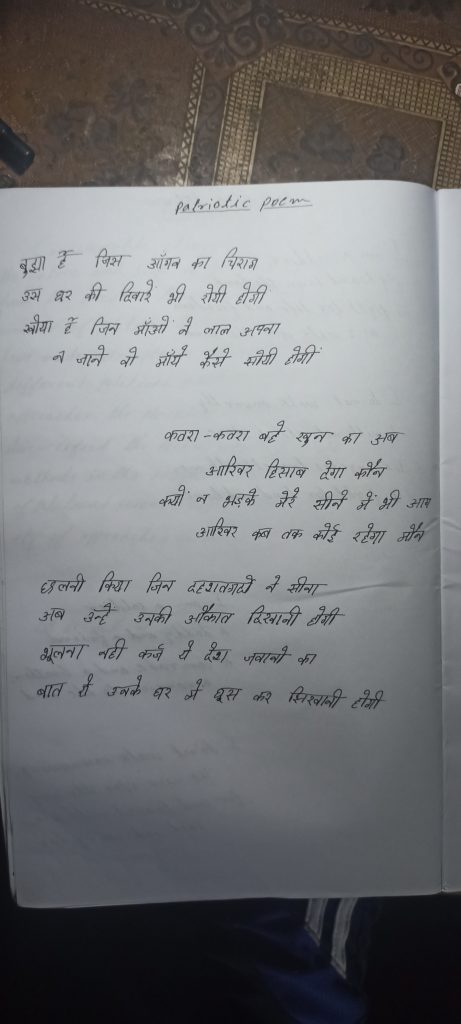 Patriotic poem
बुझा हैं जिस आँगन का चिराग
उस घर की दिवारें भी रोयी होगी
खोया हैं जिन माँओं ने लाल अपना
न जाने वो माँये कैसे सोयी होगीं
कतरा-कतरा बहे खुन का अब
आखिर हिसाब देगा कौन
क्यों न भड़के मेरे सीने में भी आग
आखिर कब तक कोई रहेगा मौन
छलनी किया जिन दहशतगर्दो ने सीना
अब उन्हें उनकी औकात दिखानी होगी
भूलना नही कर्ज ये देश जवानो का
बात ये उनके घर मे घूस कर सिखानी होगी